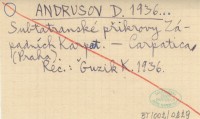 ANDRUSOV D. 1936...
Subtatranské příkrovy Zá-
padních Karpat. — Carpatica
(Praha).
Rec.: Guzik K. 1936.
BY/002/0219